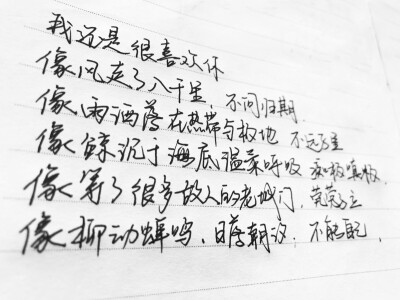 我还是很喜欢你
像风走了八千里，不问归期.
像雨洒落在热带与极地 不远万里
像鲸沉于海底温柔呼吸
像等了很多故人的老城门,茕茕孑立
像柳动蝉鸣，日落潮汐，不能自已.